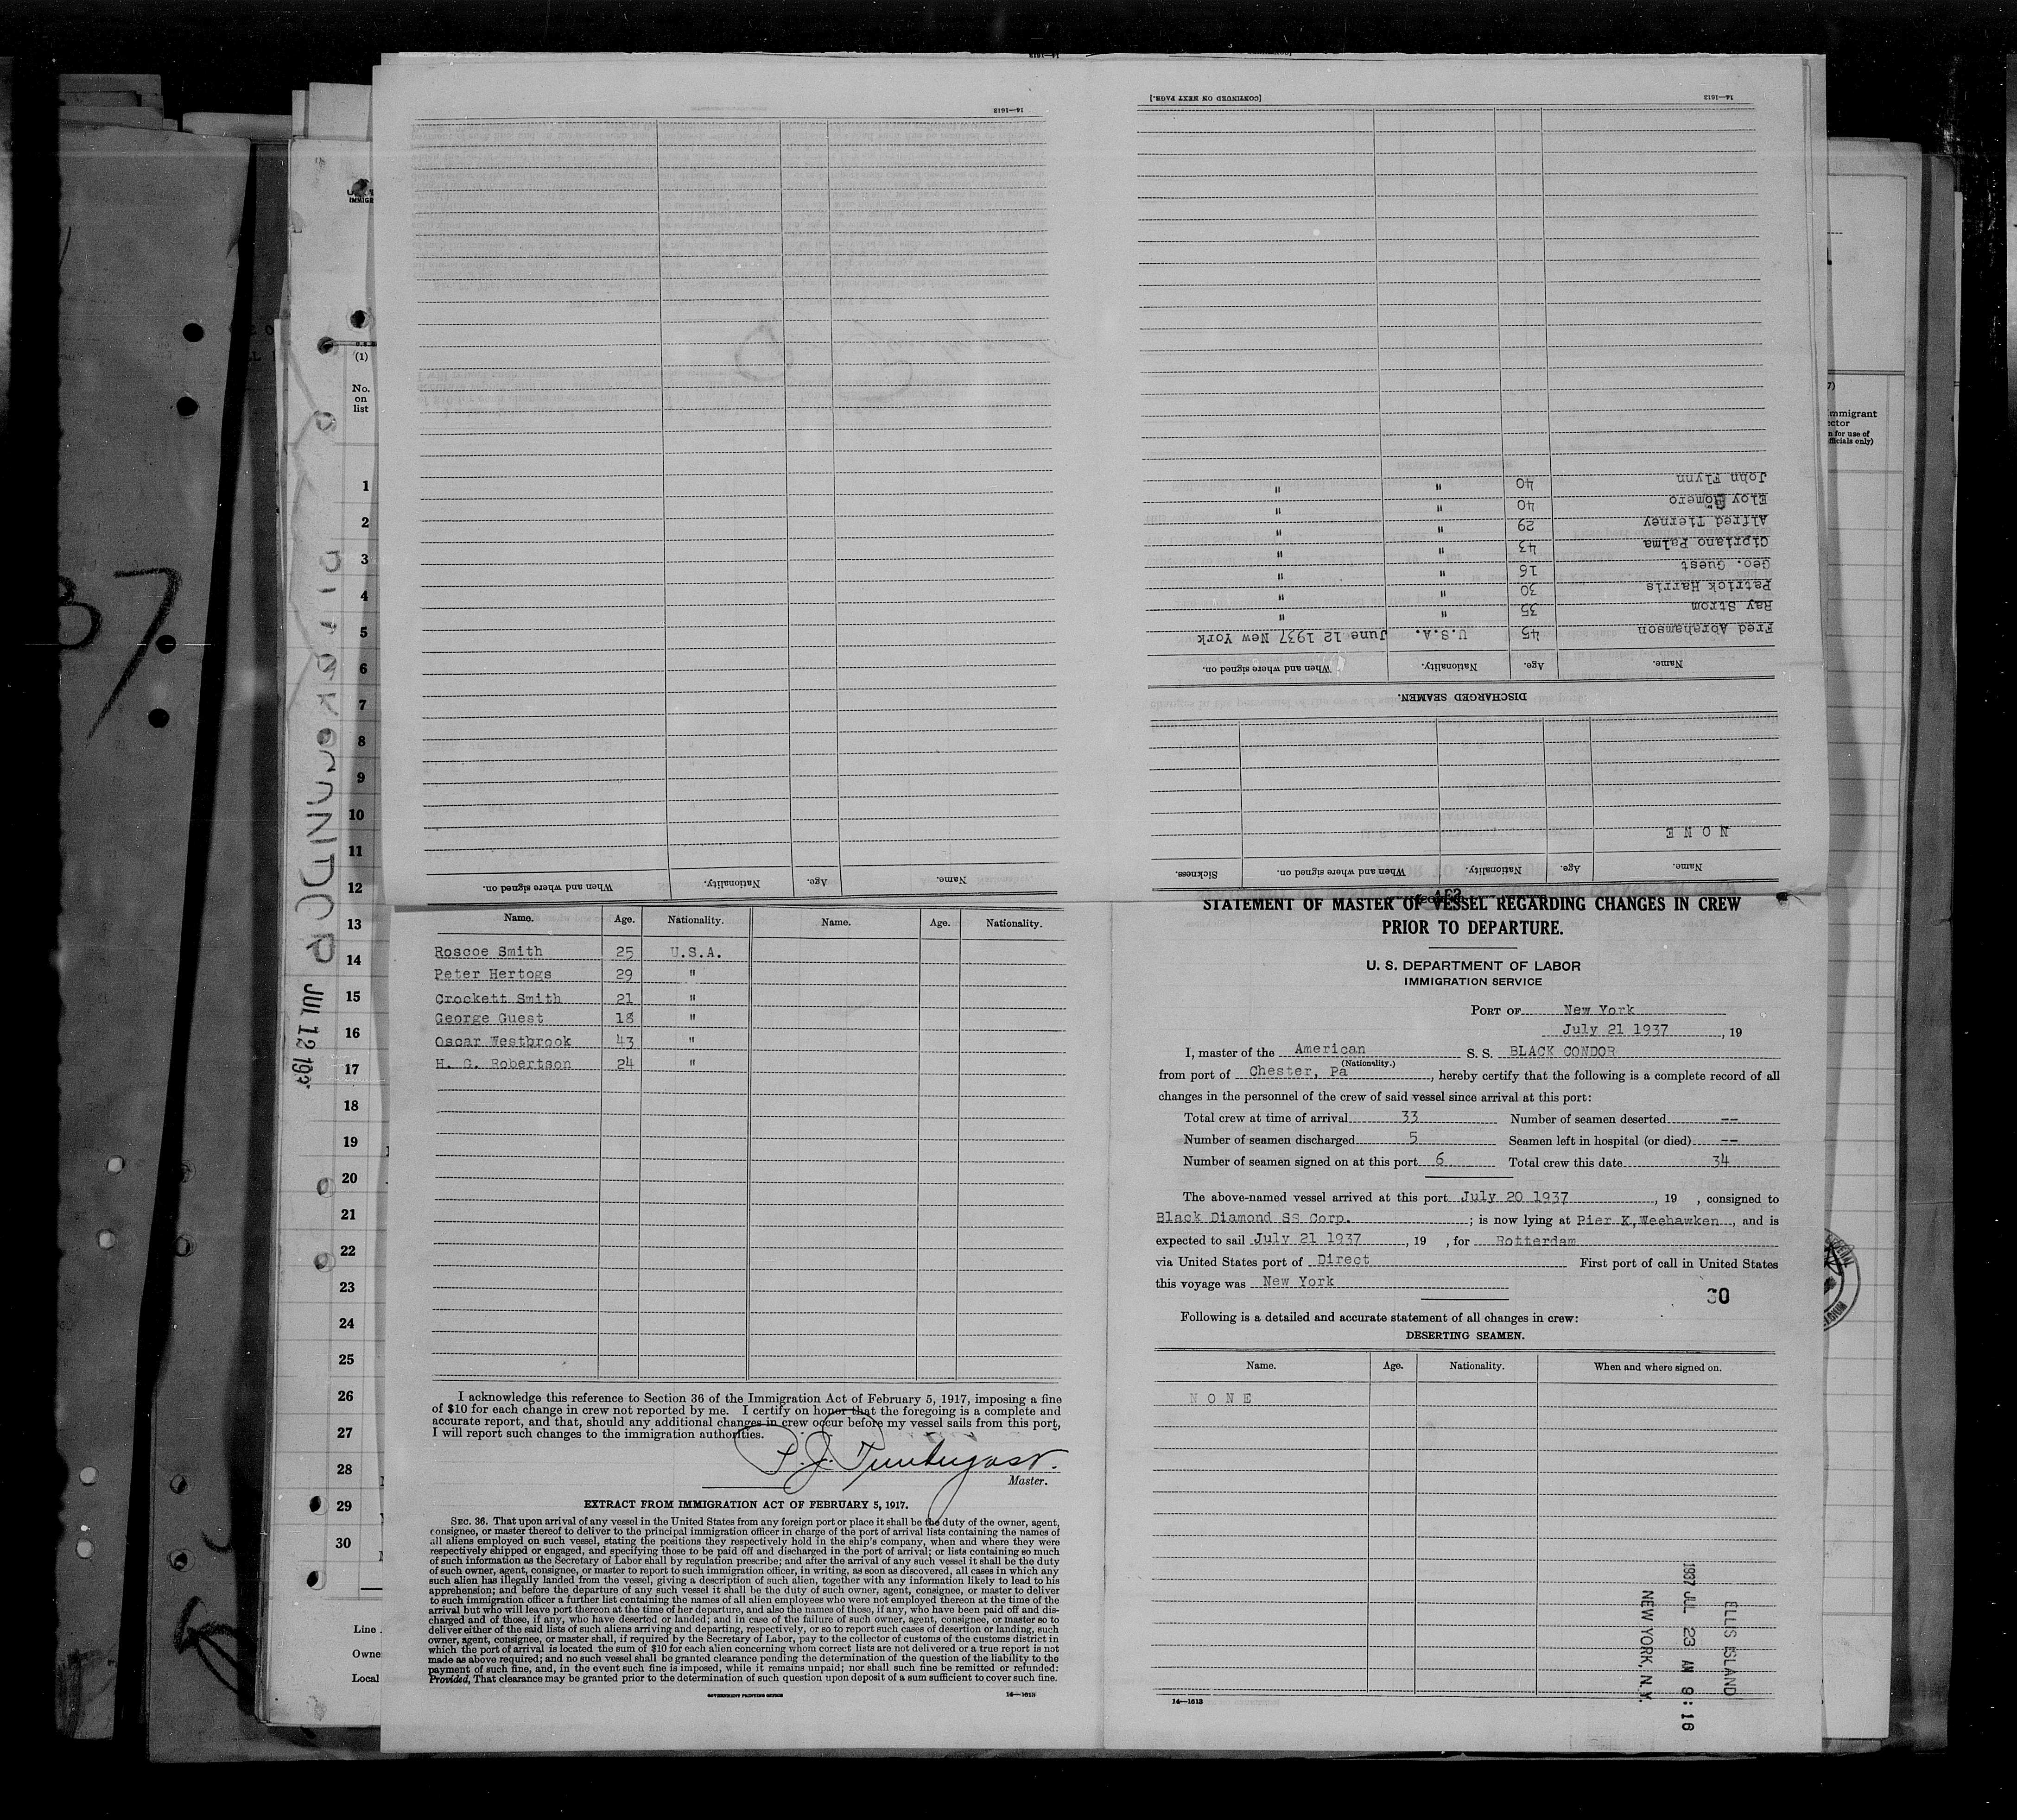 14—1613
Name. Age. Nationality. When and where signed on.
[CONTINUED ON NEXT PAGE.]
14—1613
Name. Age. Nationality. When and where signed on. Sickness.
N O N E
DISCHARGED SEAMEN.
Name. Age. Nationality. When and where signed on.
Fred Abrahamson 45 U.S.A. June 12 1937 New York
Ray Strom 35 " "
Patrick Harris 30 " "
Geo. Guest 16 " "
Cipriano Palma 43 " "
Alfred Tierney 29 " "
Eloy Romero 40 " "
John Flynn 40 " "
Name. Age. Nationality. Name. Age. Nationality.
Roscoe Smith 25 U.S.A.
Peter Hertogs 29 "
Crockett Smith 21 "
George Guest 18 "
Oscar Westbrook 43 "
H. G. Robertson 24 "
I acknowledge this reference to Section 36 of the Immigration Act of February 5, 1917, imposing a fine
of $10 for each change in crew not reported by me. I certify on honor that the foregoing is a complete and
accurate report, and that, should any additional changes in crew occur before my vessel sails from this port,
I will report such changes to the immigration authorities.
Master.
EXTRACT FROM IMMIGRATION ACT OF FEBRUARY 5, 1917.
SEC. 36. That upon arrival of any vessel in the United States from any foreign port or place it shall be the duty of the owner, agent,
consignee, or master thereof to deliver to the principal immigration officer in charge of the port of arrival lists containing the names of
all aliens employed on such vessel, stating the positions they respectively hold in the ship's company, when and where they were
respectively shipped or engaged, and specifying those to be paid off and discharged in the port of arrival; or lists containing so much
of such information as the Secretary of Labor shall by regulation prescribe; and after the arrival of any such vessel it shall be the duty
of such owner, agent, consignee, or master to report to such immigration officer, in writing, as soon as discovered, all cases in which any
such alien has illegally landed from the vessel, giving a description of such alien, together with any information likely to lead to his
apprehension; and before the departure of any such vessel it shall be the duty of such owner, agent, consignee, or master to deliver
to such immigration officer a further list containing the names of all alien employees who were not employed thereon at the time of the
arrival but who will leave port thereon at the time of her departure, and also the names of those, if any, who have been paid off and dis-
charged and of those, if any, who have deserted or landed; and in case of the failure of such owner, agent, consignee, or master so to
deliver either of the said lists of such aliens arriving and departing, respectively, or so to report such cases of desertion or landing, such
owner, agent, consignee, or master shall, if required by the Secretary of Labor, pay to the collector of customs of the customs district in
which the port of arrival is located the sum of $10 for each alien concerning whom correct lists are not delivered or a true report is not
made as above required; and no such vessel shall be granted clearance pending the determination of the question of the liability to the
payment of such fine, and, in the event such fine is imposed, while it remains unpaid; nor shall such fine be remitted or refunded:
Provided, That clearance may be granted prior to the determination of such question upon deposit of a sum sufficient to cover such fine.
GOVERNMENT PRINTING OFFICE 14—1613
STATEMENT OF MASTER OF VESSEL REGARDING CHANGES IN CREW
PRIOR TO DEPARTURE.
U. S. DEPARTMENT OF LABOR
IMMIGRATION SERVICE
PORT OF New York
July 21 1937, 19
I, master of the American S. S. BLACK CONDOR
(Nationality.)
from port of Chester, Pa, hereby certify that the following is a complete record of all
changes in the personnel of the crew of said vessel since arrival at this port:
Total crew at time of arrival 33 Number of seamen deserted --
Number of seamen discharged 5 Seamen left in hospital (or died) --
Number of seamen signed on at this port 6 Total crew this date 34
The above-named vessel arrived at this port July 20 1937, 19 , consigned to
Black Diamond SS Corp. ; is now lying at Pier K, Weehawken, and is
expected to sail July 21 1937, 19 , for Rotterdam
via United States port of Direct First port of call in United States
this voyage was New York
30
Following is a detailed and accurate statement of all changes in crew:
DESERTING SEAMEN.
Name. Age. Nationality. When and where signed on.
N O N E
14—1613
ELLIS ISLAND
1937 JUL 23 AM 9:16
NEW YORK, N.Y.
(1)
No.
on
list
1
2
3
4
5
6
7
8
9
10
11
12
13
14
15
16
17
18
19
20
21
22
23
24
25
26
27
28
29
30
Line
Owne
Local
37
mmigrant
ector
n for use of
fficials only)